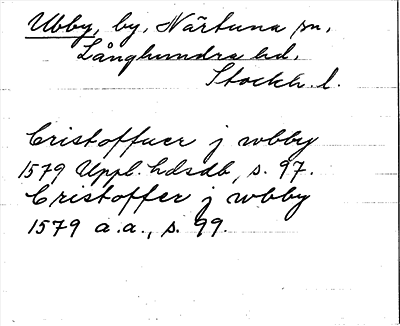 Ubby, by, Närtuna sn,
Långhundra hd,
Stockh. l.
Cristoffuer j wbby
1579 Uppl. hdsdb, s. 97.
Cristoffer j wbby
1579 a.a., s. 99.